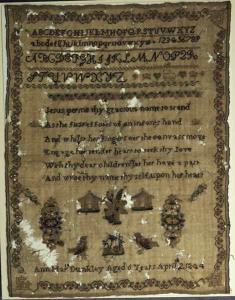 ABCDEFGHIJKLMNOPQRSTUVWXYZ
abcdefghiklmnopqrstuvwxyz 123456789
ABCDEFGHIJKLMNOPQRS
TUVWXYZ
Jesus permit thy gracious name to stand
As the first efforts of an infants hand
And while her fingers o'er the canvas move
Engage her tender heart to seek thy love
With thy dear children let her have a part
And write thy name thyself upon her heart
Ann Dunkley Aged 8 Years April